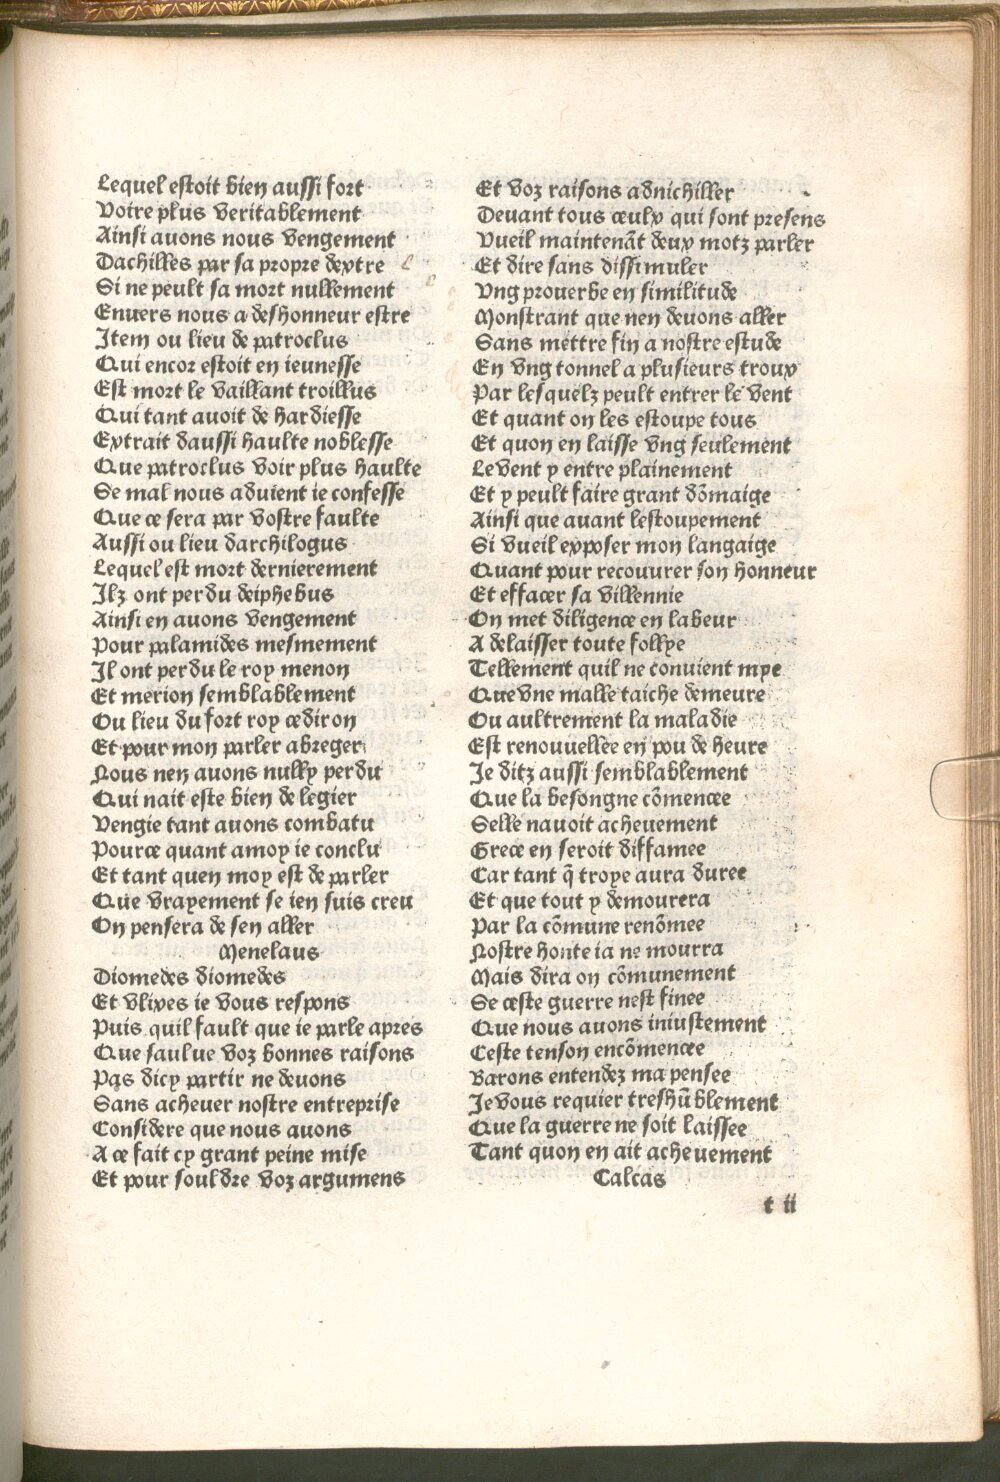 Lequel estoit bien aussi fort
Voire plus veritablement
Ainsi auons nous vengement
Dachilles par sa propre dextre
Si ne peult sa mort nullement
Enuers nous a deshonneur estre
Item ou lieu de patroclus
Qui encor estoit en ieunesse
Est mort le vaillant troillus
Qui tant auoit de hardiesse
Extrait daussi haulte noblesse
Que patroclus voir plus haulte
Se mal nous aduient ie confesse
Que ce sera par vostre faulte
Aussi ou lieu darchilogus
Lequel est mort dernierement
Ilz ont perdu deiphebus
Ainsi en auons vengement
Pour palamides mesmement
Il ont perdu le roy menon
Et merion semblablement
Ou lieu du fort roy cediron
Et pour mon parler abreger
Nous nen auons nully perdu
Qui nait este bien de legier
Vengie tant auons combatu
Pource quant amoy ie conclu
Et tant quen moy est de parler
Que vrayement se ien suis creu
On pensera de sen aller
Menelaus
Diomedes diomedes
Et vlixes ie vous respons
Puis quil fault que ie parle apres
Que saulue voz bonnes raisons
Pas dicy partir ne deuons
Sans acheuer nostre entreprise
Considere que nous auons
A ce fait cy grant peine mise
Et pour souldre voz argumens
Et voz raisons adnichiller
Deuant tous ceulx qui sont presens
Vueil maintenãt deux motz parler
Et dire sans dissimuler
Vng prouerbe en similitude
Monstrant que nen deuons aller
Sans mettre fin a nostre estude
En vng tonnel a plusieurs troux
Par lesquelz peult entrer le vent
Et quant on les estoupe tous
Et quon en laisse vng seulement
Le vent y entre plainement
Et y peult faire grant dõmaige
Ainsi que auant lestoupement
Si vueil exposer mon langaige
Quant pour recouurer son honneur
Et effacer sa villennie
On met diligence en labeur
A delaisser toute follye
Tellement quil ne conuient mye
Que vne malle taiche demeure
Ou aultrement la maladie
Est renouuellee en pou de heure
Je ditz aussi semblablement
Que la besongne cõmencee
Selle nauoit acheuement
Grece en seroit diffamee
Car tant q̃ troye aura duree
Et que tout y demourera
Par la cõmune renõmee
Nostre honte ia ne mourra
Mais dira on cõmunement
Se ceste guerre nest finee
Que nous auons iniustement
Ceste tenson encõmencee
Barons entendez ma pensee
Je vous requier treshũblement
Que la guerre ne soit laissee
Tant quon en ait acheuement
Calcas
t ii